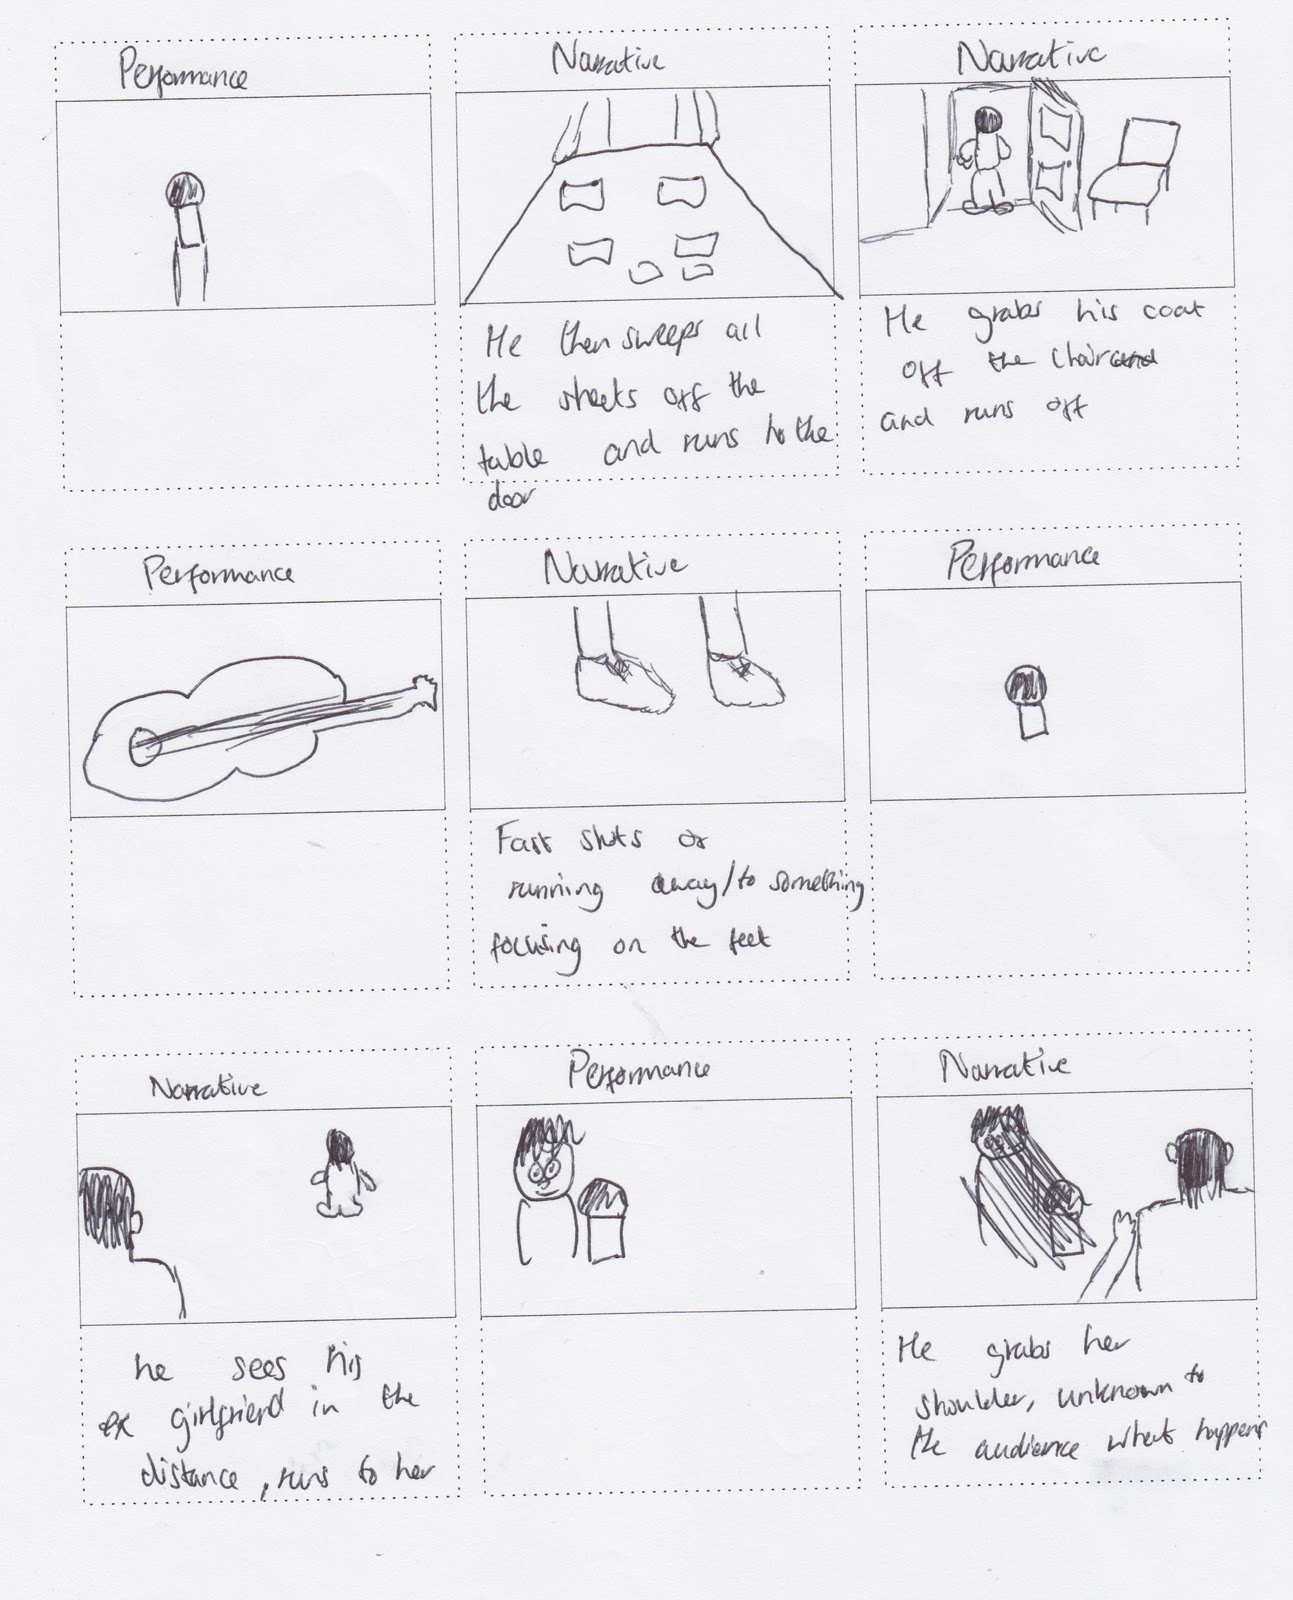 Performance
Narrative
Narrative
He then sweeps all
the sheets off the
table and runs to the
door
He grabs his coat
off the chair and
and runs off
Performance
Narrative
Performance
Fast shots of
running away/to something
focusing on the feet
Narrative
Performance
Narrative
he sees his
ex girlfriend in the
distance, runs to her
He grabs her
shoulder, unknown to
the audience what happens